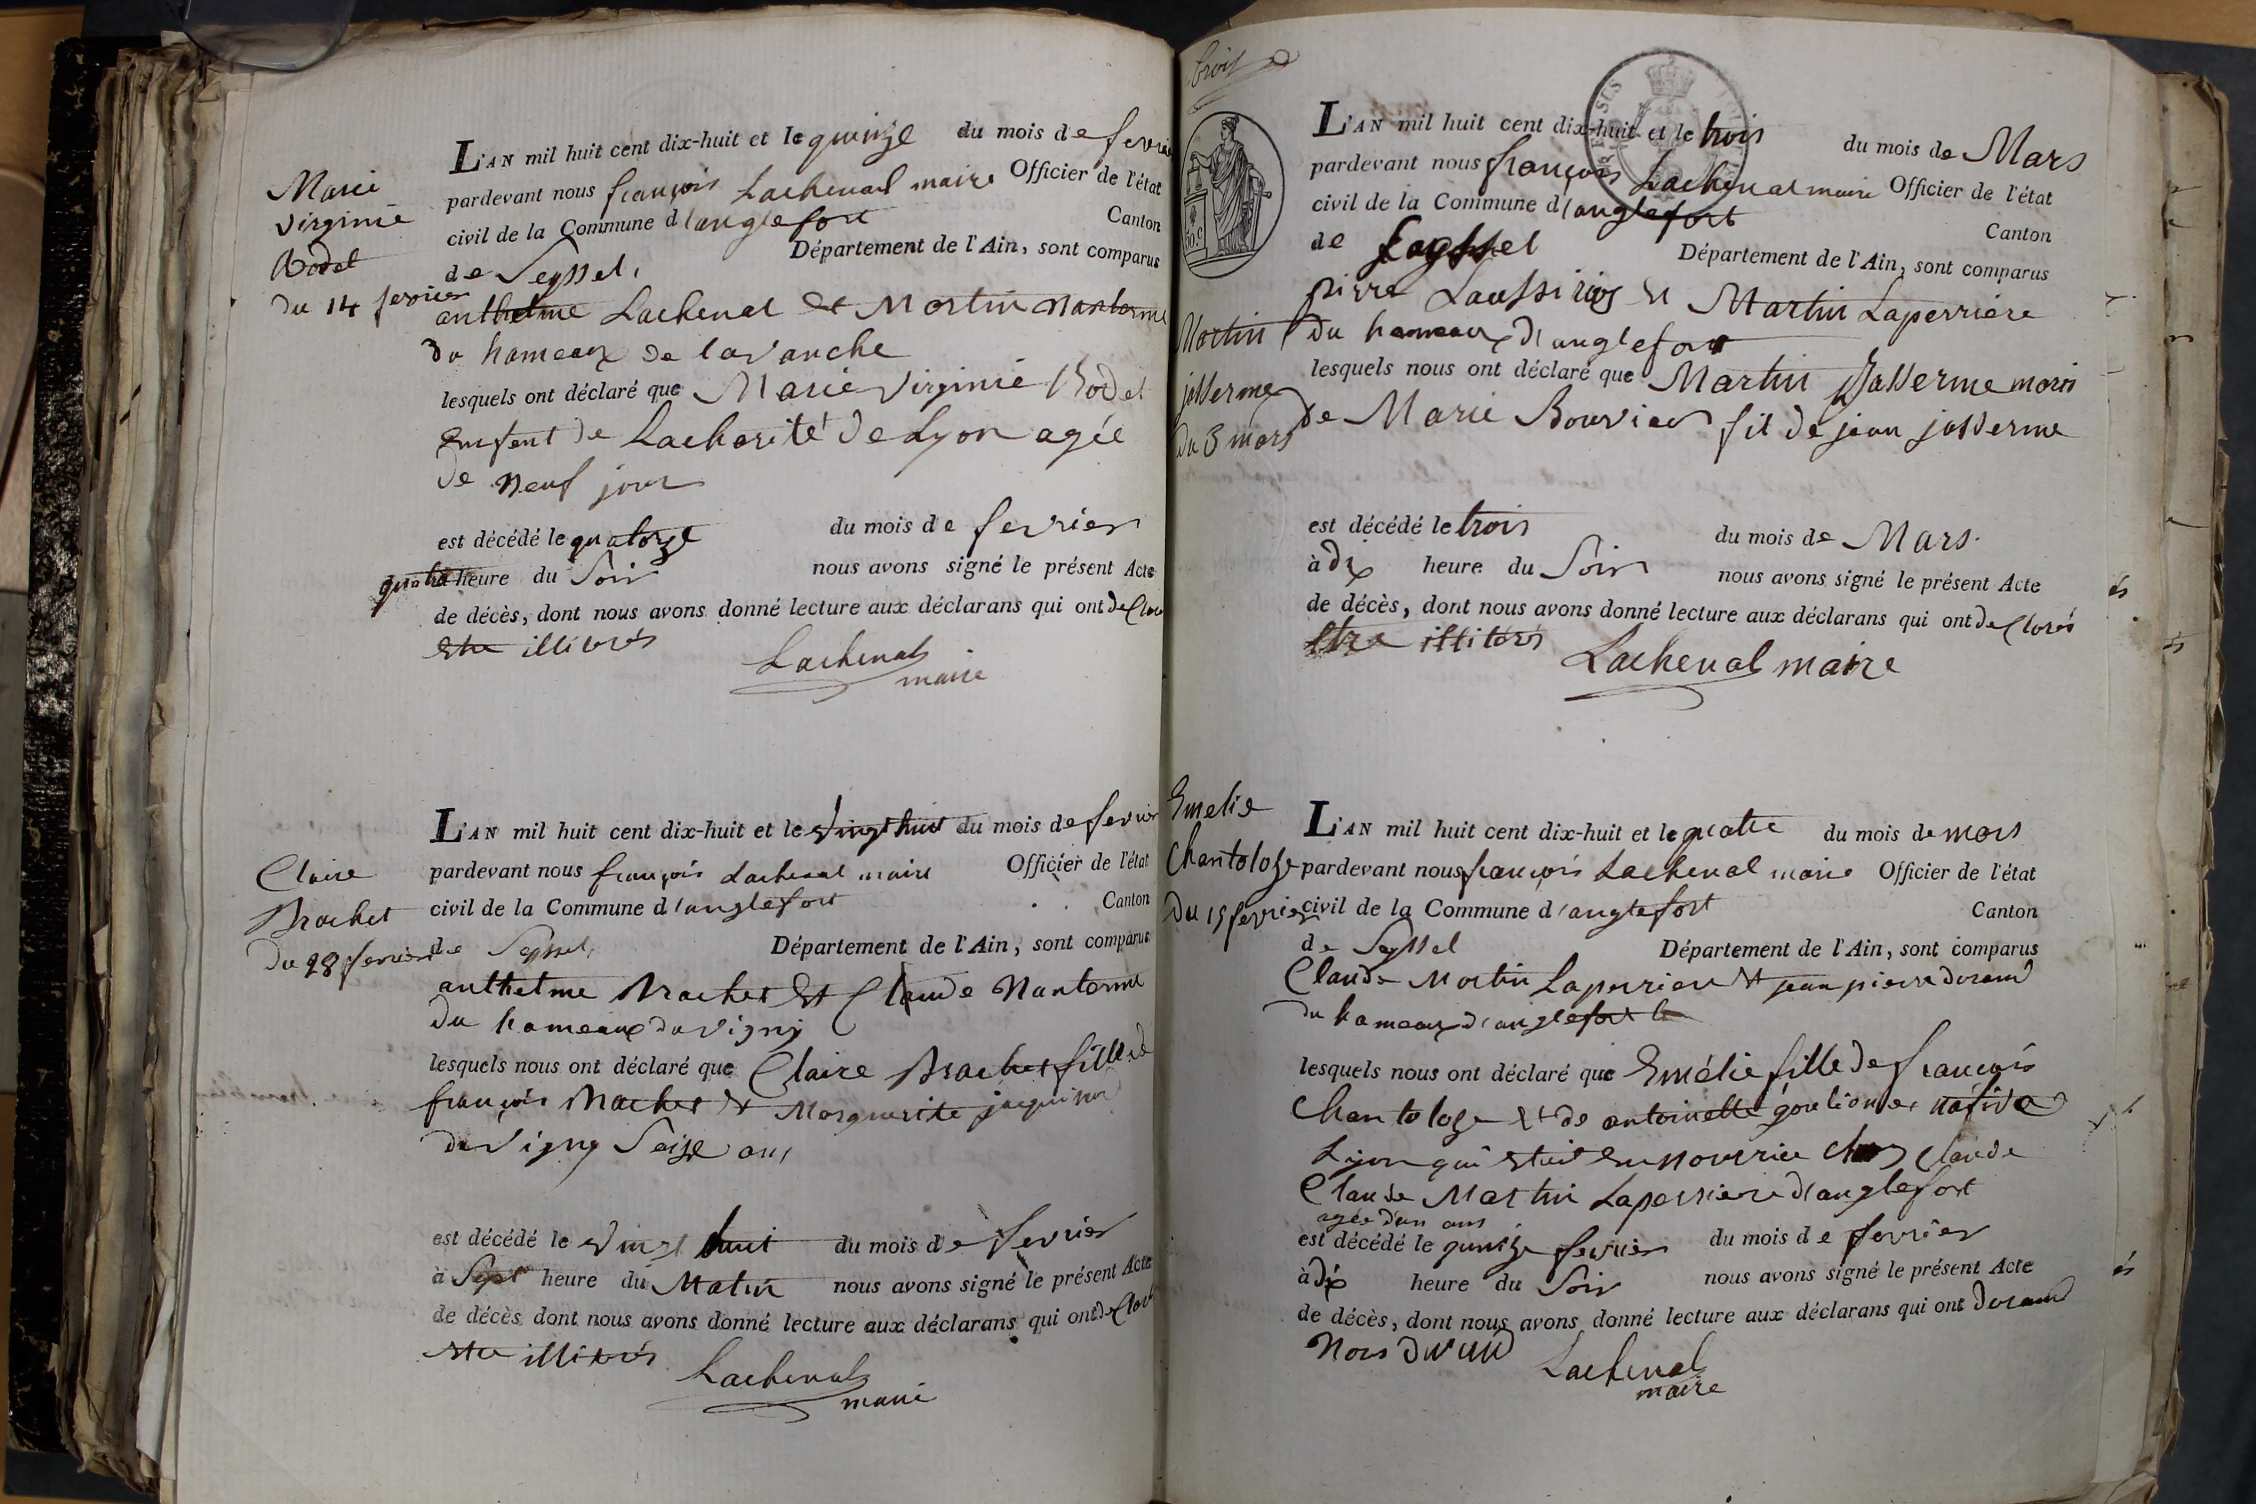 Marie
Virginie
Bodet
du 14 fevrier
L'AN mil huit cent dix-huit et le quinze du mois de fevrier
pardevant nous françois Lachenal maire Officier de l'état
civil de la Commune d'anglefort Canton
de Seyssel, Département de l'Ain, sont comparus
anthelme Lachenal et Martin Nanterme
du hameaux de lavanche
lesquels ont déclaré que Marie Virginie Bodet
enfent de Lacharité de Lyon agée
de neuf jour
est décédé le quatorze du mois de fevrier
quatre heure du Soir nous avons signé le présent Acte
de décès, dont nous avons donné lecture aux déclarans qui ont declare
etre illiterés
Lachenal
maire
Claire
Brachet
du 28 fevrier
L'AN mil huit cent dix-huit et le vingt huit du mois de fevrier
pardevant nous françois Lachenal maire Officier de l'état
civil de la Commune d'anglefort Canton
de Seyssel, Département de l'Ain, sont comparus
anthelme Brachet et Claude Nanterme
du hameaux davigny
lesquels nous ont déclaré que Claire Brachet fille de
françois Brachet et Marguerite
davigny Seize ans
est décédé le vingt huit du mois de fevrier
à Sept heure du Matin nous avons signé le présent Acte
de décès dont nous avons donné lecture aux déclarans qui ont declaré
etre illiterés
Lachenal
maire
trois
50 c
Martin
josserme
du 3 mars
L'AN mil huit cent dix-huit et le trois du mois de Mars
pardevant nous françois Lachenal maire Officier de l'état
civil de la Commune d'anglefort Canton
de Seyssel Département de l'Ain, sont comparus
pierre et Martin Laperriere
du hameaux d'anglefort
lesquels nous ont déclaré que Martin Josserme
de Marie Bouvier fil de jean josserme
est décédé le trois du mois de Mars.
à dix heure du Soir nous avons signé le présent Acte
de décès, dont nous avons donné lecture aux déclarans qui ont declarés
etre illiterés
Lachenal maire
Emelie
Chantoloze
du 15 fevrier
L'AN mil huit cent dix-huit et le quatre du mois de mars
pardevant nous françois Lachenal maire Officier de l'état
civil de la Commune d'anglefort Canton
de Seyssel Département de l'Ain, sont comparus
Claude Martin Laperriere et jean pierre durand
du hameaux d'anglefort
lesquels nous ont déclaré que Emélie fille de françois
Chantoloze et de antoinette native
Lyon qui etait en nourrice chez Claude
Claude Martin Laperriere d'anglefort
agée d'un ans
est décédé le quinze fevrier du mois de fevrier
à dix heure du Soir nous avons signé le présent Acte
de décès, dont nous avons donné lecture aux déclarans qui ont durand
Nous durand
Lachenal
maire